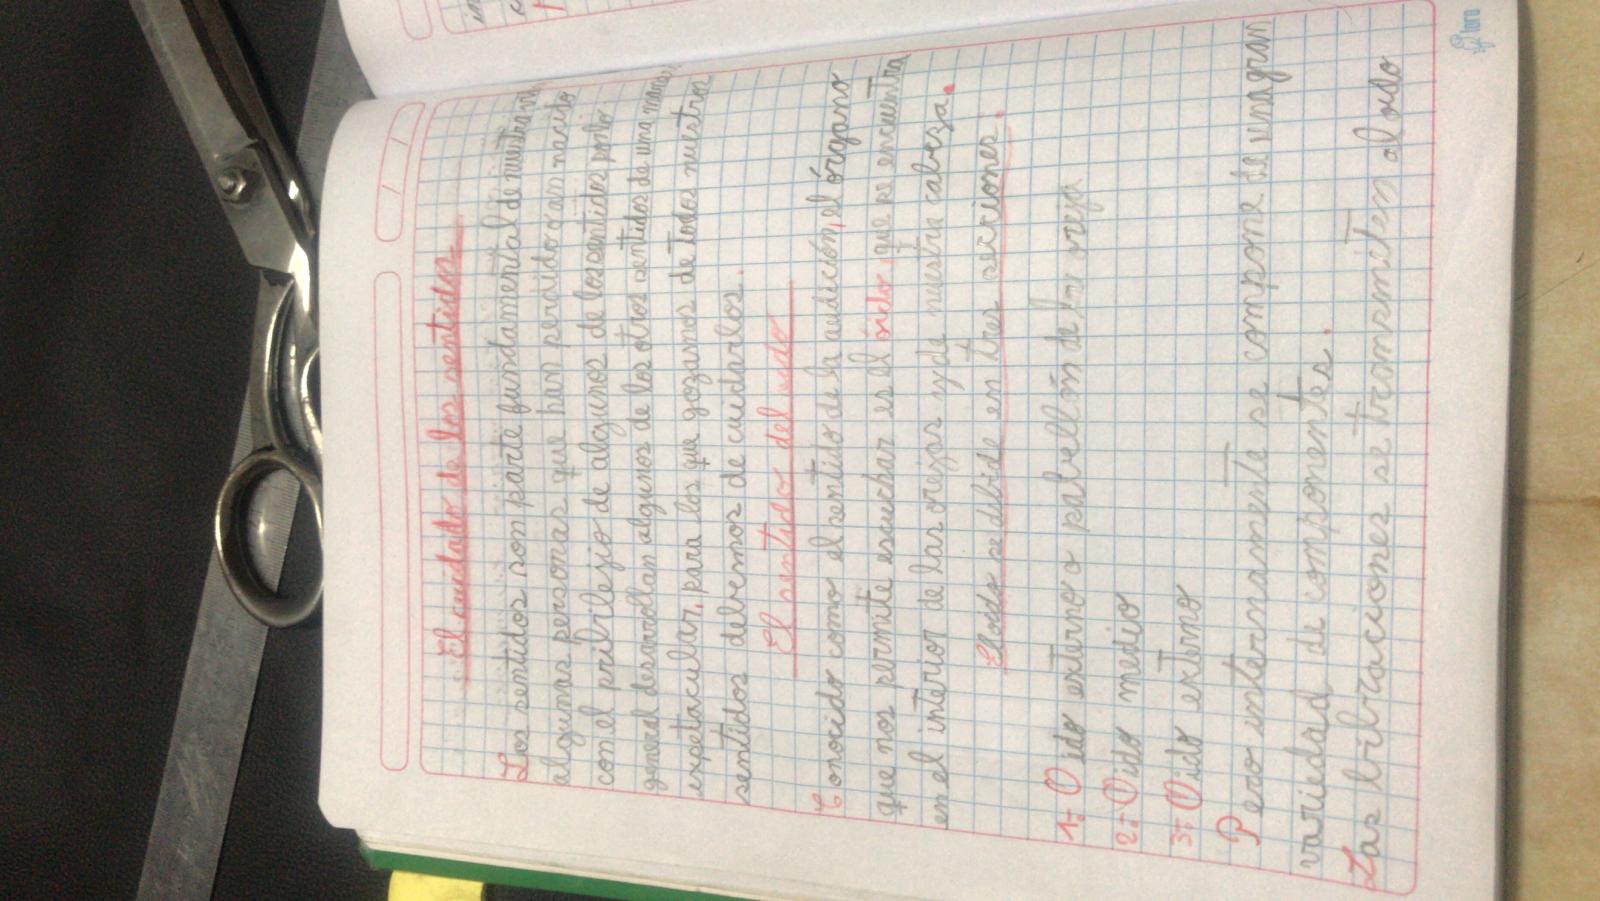 El cuidado de los sentidos.
Los sentidos son parte fundamental de nuestra
algunas personas que han perdido o an nacido
con el pribilejio de algunos de los sentidos
general desarrollan algunos de los otros sentidos de una
expetacular, para los que gozamos de todos nuestros
sentidos debemos de cuidarlos.
El sentido del oido
Conocido como el sentido de la audición, el órgano
que nos permite escuchar es el óido, que se encuentra
en el interior de las orejas y de nuestra cabeza.
El oido se dibide en tres secciones:
1.- Oido externo o pabellón de la oreja
2.- Oido medio
3.- Oido externo
Pero internamente se compone de una gran
variedad de componentes.
Las bibraciones se transmiten al oido
loro